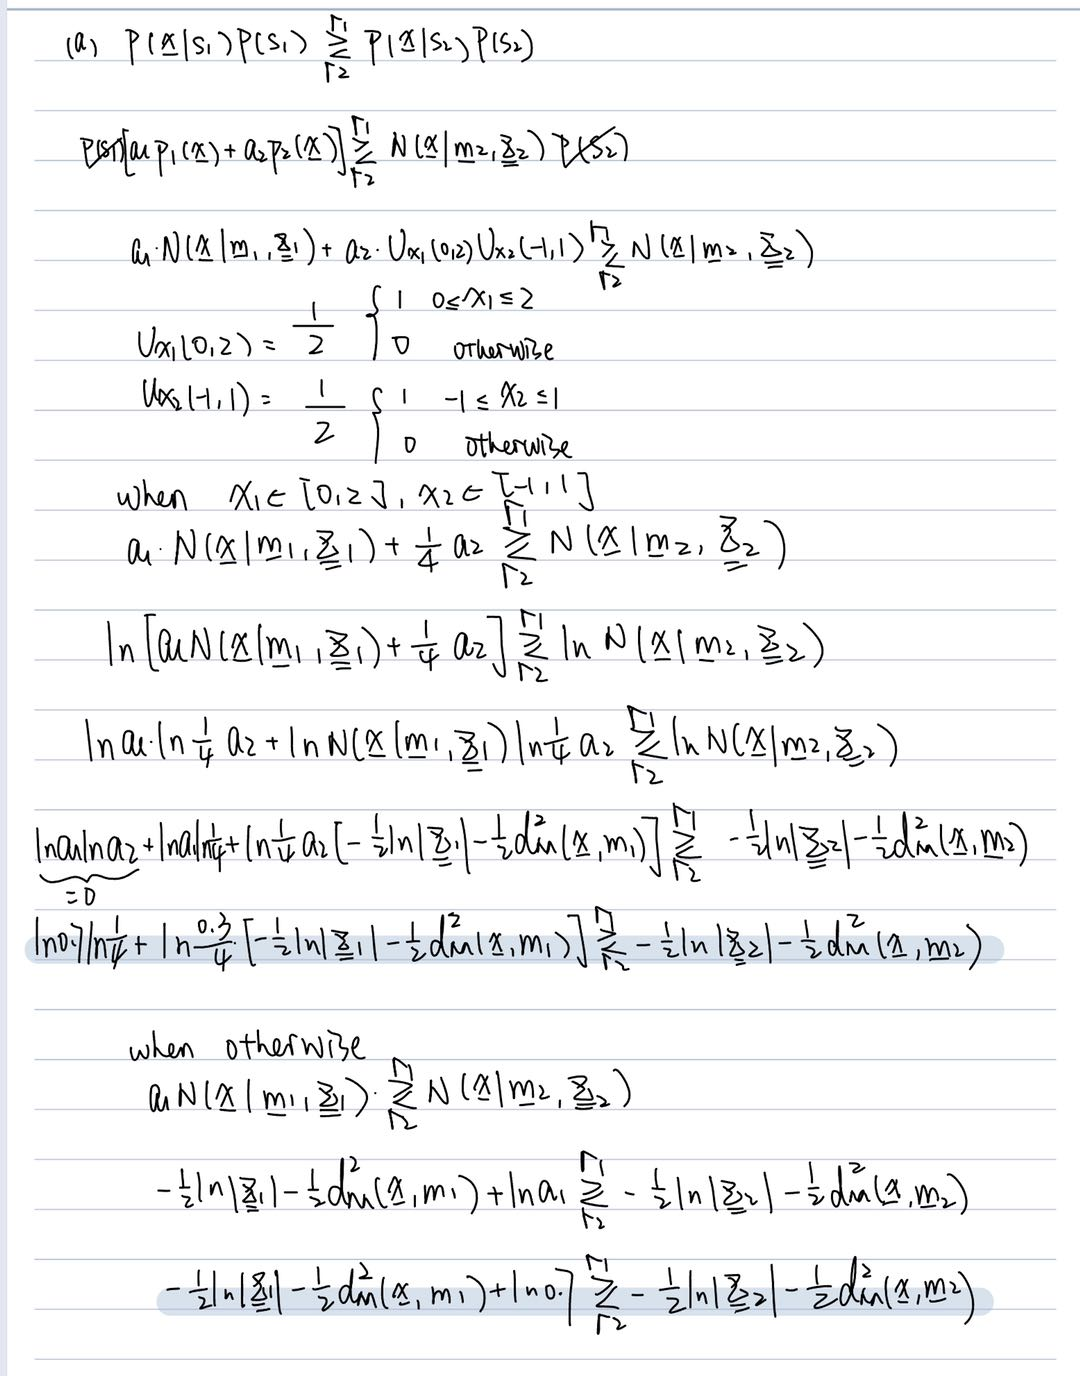 (a) P(x|S₁)P(S₁) ≷ Γ₁ Γ₂ P(x|S₂)P(S₂)
P(S₁)[a₁p₁(x)+a₂p₂(x)] ≷ Γ₁ Γ₂ N(x|m₂,Σ₂) P(S₂)
a₁·N(x|m₁,Σ₁)+a₂·Ux₁(0,2)Ux₂(-1,1) ≷ Γ₁ Γ₂ N(x|m₂,Σ₂)
Ux₁(0,2) = 1/2 { 1 0≤x₁≤2
0 otherwise
Ux₂(-1,1) = 1/2 { 1 -1≤x₂≤1
0 otherwise
when x₁∈[0,2], x₂∈[-1,1]
a₁·N(x|m₁,Σ₁)+1/4 a₂ ≷ Γ₁ Γ₂ N(x|m₂,Σ₂)
ln[a₁N(x|m₁,Σ₁)+1/4 a₂] ≷ Γ₁ Γ₂ ln N(x|m₂,Σ₂)
ln a₁·ln 1/4 a₂ + ln N(x|m₁,Σ₁) ln 1/4 a₂ ≷ Γ₁ Γ₂ ln N(x|m₂,Σ₂)
ln a₁ ln a₂ + ln a₁ ln 1/4 + ln 1/4 a₂ [-1/2 ln|Σ₁| - 1/2 d²m(x,m₁)] ≷ Γ₁ Γ₂ -1/2 ln|Σ₂| - 1/2 d²m(x,m₂)
=0
ln 0.7 ln 1/4 + ln 0.3/4 · [-1/2 ln|Σ₁| - 1/2 d²m(x,m₁)] ≷ Γ₁ Γ₂ -1/2 ln|Σ₂| - 1/2 d²m(x,m₂)
when otherwise
a₁N(x|m₁,Σ₁) · ≷ Γ₁ Γ₂ N(x|m₂,Σ₂)
-1/2 ln|Σ₁| - 1/2 d²m(x,m₁) + ln a₁ ≷ Γ₁ Γ₂ -1/2 ln|Σ₂| - 1/2 d²m(x,m₂)
-1/2 ln|Σ₁| - 1/2 d²m(x,m₁) + ln 0.7 ≷ Γ₁ Γ₂ -1/2 ln|Σ₂| - 1/2 d²m(x,m₂)